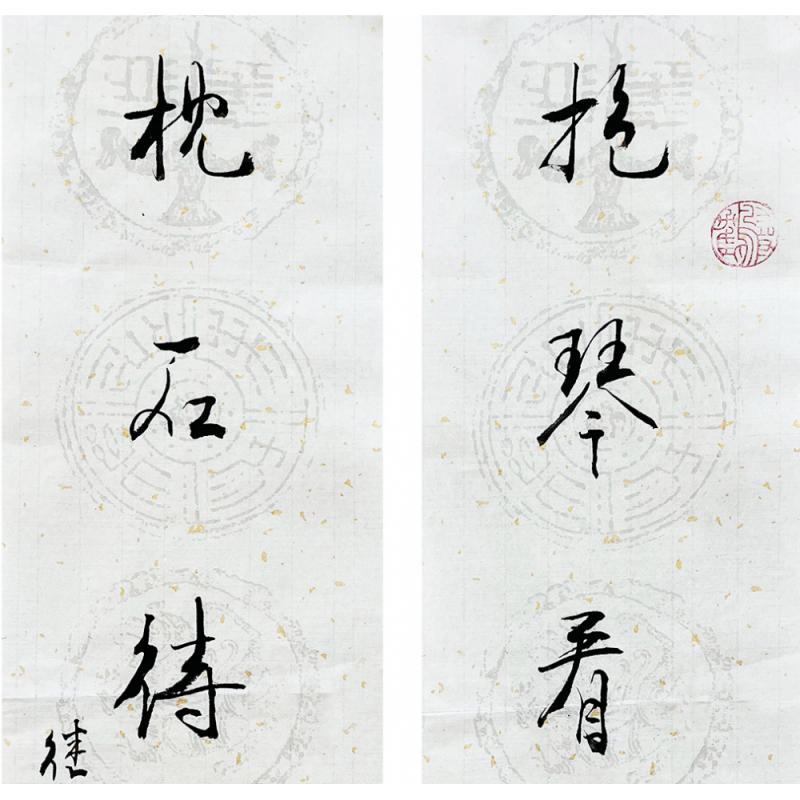 抱琴看
枕石待